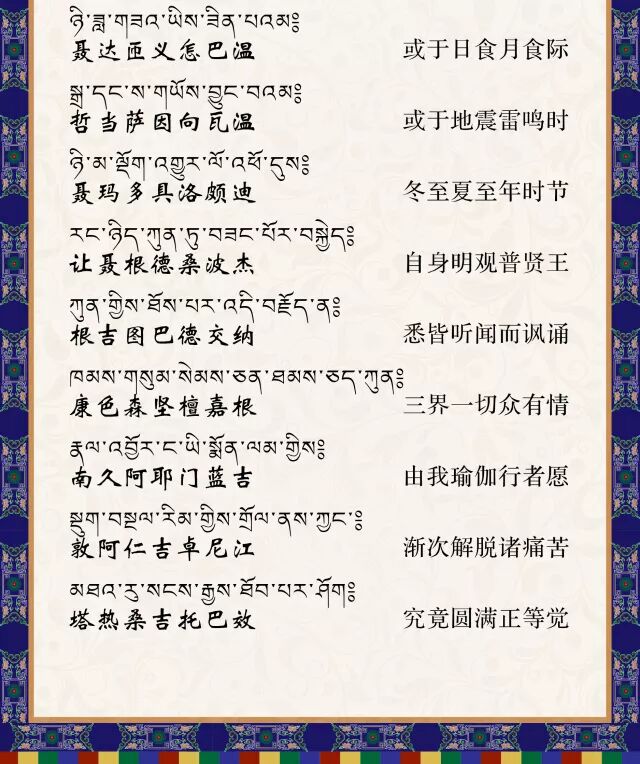 ཉི་ཟླ་གཟའ་ཡིས་ཟིན་པའམ༔
聂达匝义怎巴温 或于日食月食际
སྒྲ་དང་ས་གཡོས་བྱུང་བའམ༔
哲当萨因向瓦温 或于地震雷鸣时
ཉི་མ་ལྡོག་འགྱུར་ལོ་འཕོ་དུས༔
聂玛多具洛颇迪 冬至夏至年时节
རང་ཉིད་ཀུན་ཏུ་བཟང་པོར་བསྐྱེད༔
让聂根德桑波杰 自身明观普贤王
ཀུན་གྱིས་ཐོས་པར་འདི་བརྗོད་ན༔
根吉图巴德交纳 悉皆听闻而讽诵
ཁམས་གསུམ་སེམས་ཅན་ཐམས་ཅད་ཀུན༔
康色森坚檀嘉根 三界一切众有情
རྣལ་འབྱོར་ང་ཡི་སྨོན་ལམ་གྱིས༔
南久阿耶门蓝吉 由我瑜伽行者愿
སྡུག་བསྔལ་རིམ་གྱིས་གྲོལ་ནས་ཀྱང་༔
敦阿仁吉卓尼江 渐次解脱诸痛苦
མཐའ་རུ་སངས་རྒྱས་ཐོབ་པར་ཤོག༔
塔热桑吉托巴效 究竟圆满正等觉